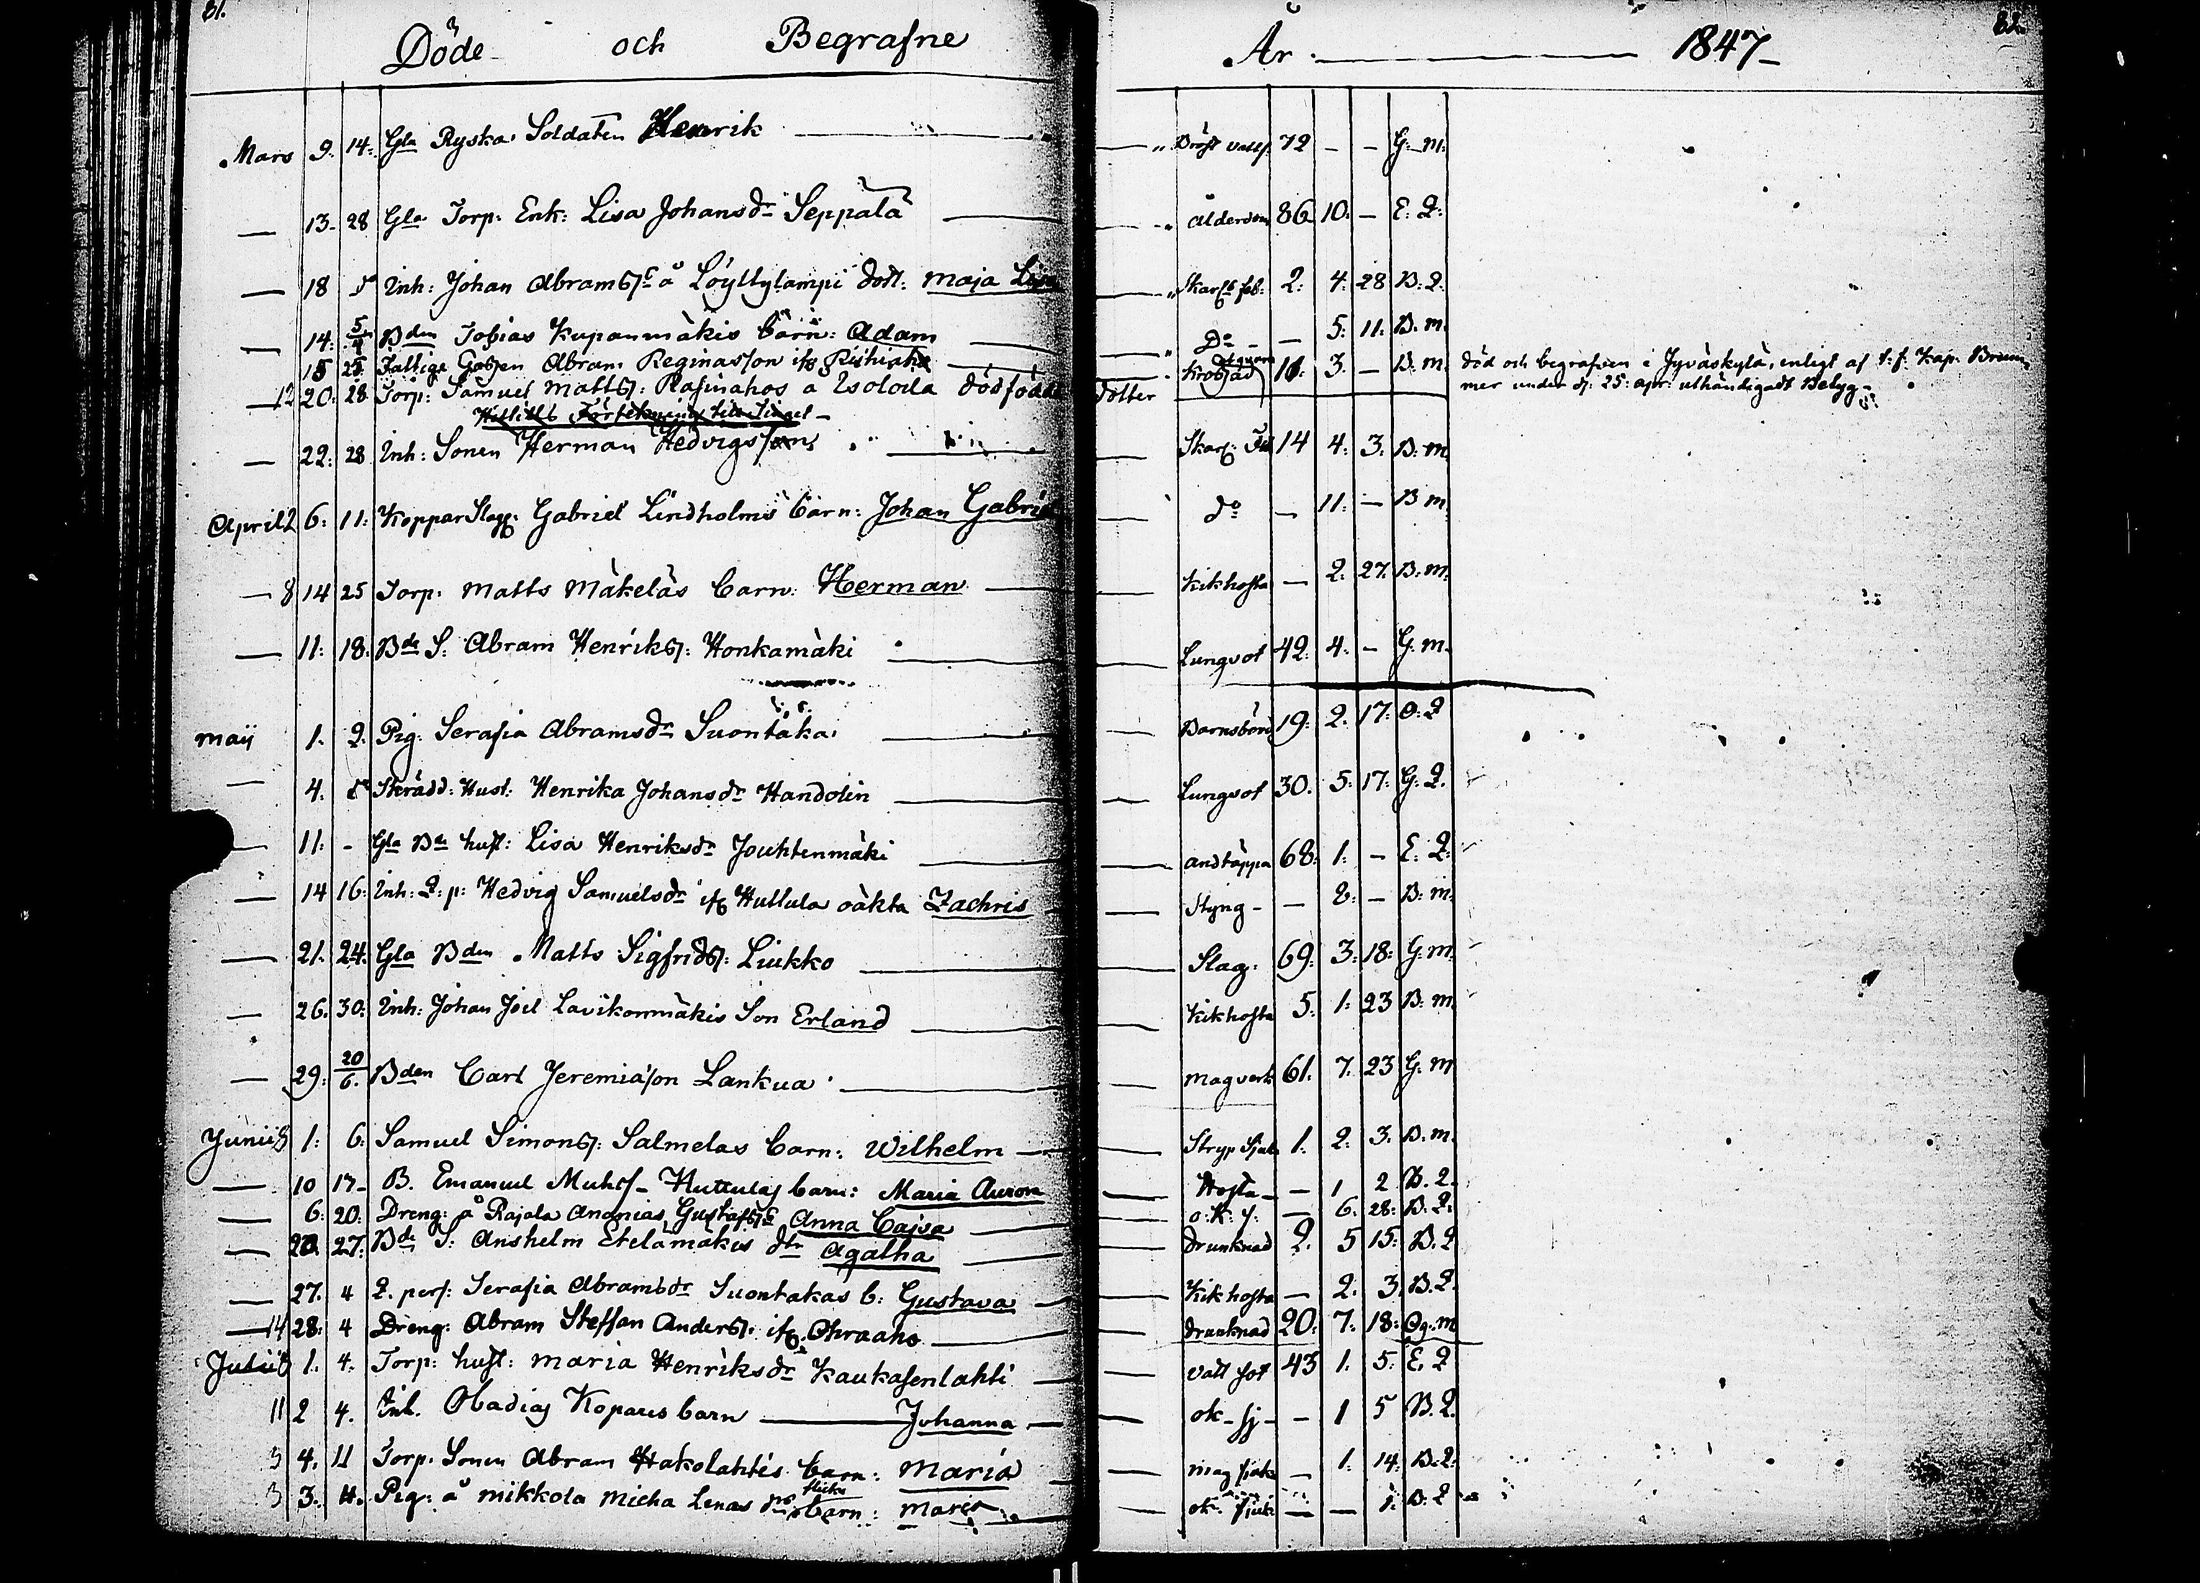 81. Döde och Begrafne År 1847 82.
Mars 9. 14. Gla Ryska Soldaten Henrik — Bröst vatts. 72 – – G. m.
— 13. 28 Gla Torp. Enk: Lisa Johansdr Seppälä — ålderdom 86 10. – E. Q.
— 18 Inh: Johan Abrams. å Löyttylampi dott. Maja Lisa Skarl. feb. 2. 4. 28 B. Q.
— 14. 5/4 Bden Tobias Kupanmäkis barn: Adam Do – 5. 11. B. m.
15 25 Fattige Gossen Abram Reginasson ifr. 11. 3. – B. m. död och begrafven i Jyväskylä, enligt af
mer under d. 25. apr. uthändigadt Betyg
— 12 20. 28 Torp. Samuel Matts. å Isoloila dödfödde dotter
— 22. 28 Inh: Sonen Herman Hedvigsson — Skarl. Feb 14 4. 3. B. m.
April 2 6. 11. Kopparslag. Gabriel Lindholms barn: Johan Gabriel — do – 11. – B m.
— 8 14 25 Torp. Matts Mäkeläs barn: Herman — Kikhosta – 2. 27. B. m.
— 11. 18. Bde S. Abram Henriks. Honkamäki — Lungsot 42. 4. – G. m.
Maij 1. 2. Pig. Serafia Abramsdr Suontaka — Barnsbörd 19. 2. 17. O. Q
— 4. Skrädd. Hust. Henrika Johansdr Handolin — Lungsot 30. 5. 17. G. Q.
— 11. – Gla Bde hust: Lisa Henriksdr Jouhtenmäki — andtäppa 68. 1. – E. Q.
— 14 16. Inh: Q. p. Hedvig Samuelsdr ifr Huttula oäkta Zachris — Styng – – 2. – B. m.
— 21. 24. Gla Bden Matts Sigfrids. Liukko — Slag. 69. 3. 18. G. m.
— 26. 30. Inh: Johan Joel Lavikonmäkis Son Erland — Kikhosta 5. 1. 23 B. m.
— 29. 20/6. Bden Carl Jeremiasson Lankua — magverk 61. 7. 23 G. m
Junii 8 1. 6. Samuel Simons. Salmelas barn: Wilhelm — Stryp Sjuk 1. 2. 3. B. m.
— 10 17– B. Emanuel Huttulas barn: Maria Auron — Hosta – – 1 2 B. Q.
— 6. 20. Dreng. å Rajala Ananias Gustafs. Anna Cajsa — o. k. s. – 6. 28. B. Q.
— 20. 27. Bde S. Anshelm Etelämäkis dtr Agatha — drunknad 2. 5 15. B. Q
— 27. 4 Q. pers. Serafia Abramsdr Suontakas b: Gustava — Kikhosta – 2. 3 B. Q.
— 14 28. 4 Dreng. Abram Steffan Anders. ifr. Ohraaho — drunknad 20. 7. 18. Og. m
Julii 8 1. 4. Torp. hust: Maria Henriksdr Kaukasenlahti — vatt sot 43 1. 5. E. Q
11 2 4. Inh. Obadias Kopares barn — Johanna — ok– sj – – 1 5 B. Q.
3 4. 11 Torp. Sonen Abram Hakolahtis barn: Maria — mag sjuk – 1. 14. B. Q.
3 3. 11. Pig. å Mikkola Micha Lenas flicko barn: Maria — ok. sjuk. – – 1. B. Q